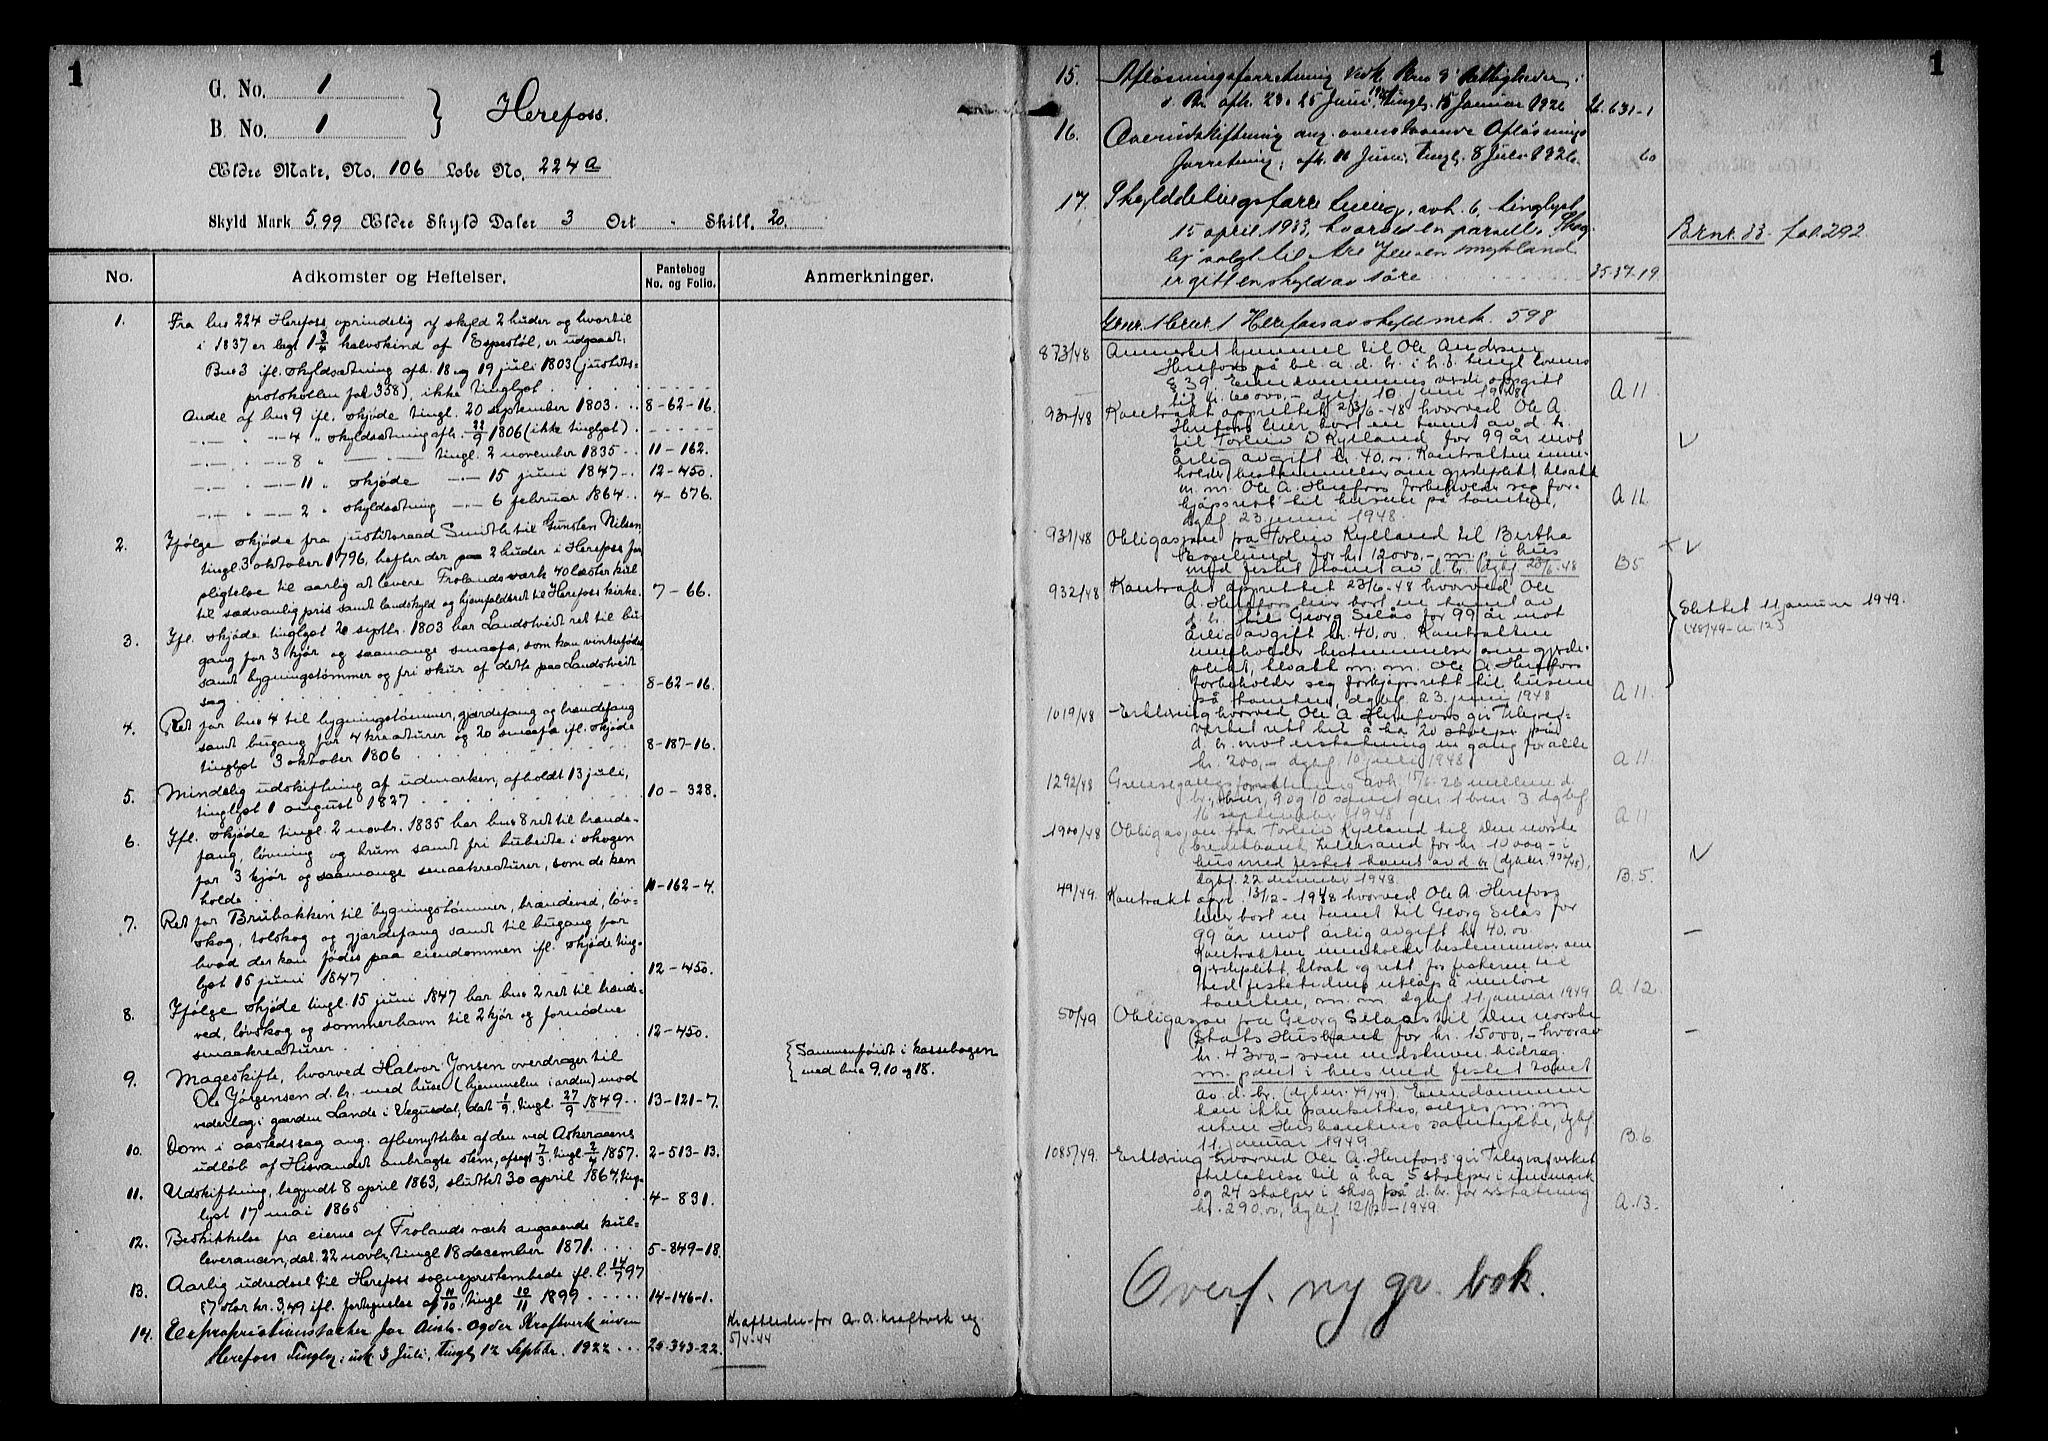 1
G. No. 1
B. No. 1
Herefoss.
Ældre Matr. No. 106 Løbe No. 224 a
Skyld Mark 5,99 Ældre Skyld Daler 3 Ort - Skill. 20.
No. Adkomster og Heftelser. Pantebog No. og Folio. Anmerkninger.
1. Fra bno 224 Herefoss oprindelig af skyld 2 huder og hvortil
i 1837 er lagt 1 3/4 kalvskind af Espestøl, er udgaaet:
Bno 3 ifl. skyldsætning afh. 18 og 19 juli 1803 (justits-
protokollen fol. 358), ikke tinglyst
Andel af bno 9 ifl. skjøde tingl. 20 september 1803. 8-62-16.
-"- 4 " skyldsætning afh. 22/9 1806 (ikke tinglyst)
-"- 8 " -"- tingl. 2 november 1835 11-162.
-"- 11 " skjøde -"- 15 juni 1847 12-450.
-"- 2 " skyldsætning -"- 6 februar 1864 4-676.
2. Ifølge skjøde fra justitsraad Smidth til Gunsten Nilsen
tingl. 3 oktober 1796, hefter der paa 2 huder i Herefoss for
pligtelse til aarlig at levere Frolands værk 40 læster kul
til sædvanlig pris samt landskyld og hjemfaldsret til Herefoss kirke. 7-66.
3. Ifl. skjøde tinglyst 20 septbr. 1803 har Landstveit ret til bu-
gang for 3 kjør og saamange smaafæ, som kan vinterfødes
samt bygningstømmer og fri skur af dette paa Landstveit
sag 8-62-16.
4. Ret for bno 4 til bygningstømmer, gjærdefang og brændefang
samt bugang for 4 kreaturer og 20 smaafæ ifl. skjøde
tinglyst 3 oktober 1806 8-187-16.
5. Mindelig udskiftning af udmarken, afholdt 13 juli,
tinglyst 1 august 1827 10-328.
6. Ifl. skjøde tingl. 2 novbr. 1835 har bno 8 ret til brænde-
fang, løvning og brum samt fri bubeite i skogen
for 3 kjør og saamange smaakreaturer, som de kan
holde 11-162-4.
7. Ret for Brubakken til bygningstømmer, brændeved, løv-
skog, tolskog og gjærdefang samt til bugang for
hvad der kan fødes paa eiendommen ifl. skjøde ting-
lyst 15 juni 1847 12-450.
8. Ifølge skjøde tingl. 15 juni 1847 har bno 2 ret til brænde-
ved, løvskog og sommerhavn til 2 kjør og fornødne
smaakreaturer 12-450.
9. Mageskifte, hvorved Halvor Jonsen overdrager til
Ole Jørgensen d. br. med huse (hjemmelen i orden) mod
vederlag i gaarden Lande i Vegusdal, dat 1/9, tingl. 27/9 1849 13-121-7.
Sammenføiet i kassebogen
med bno 9, 10 og 18.
10. Dom i aastedssag ang. afbenyttelse af den ved Askeraaens
udløb af Hisvandet anbragte stem, afsagt 7/3, tingl. 2/4 1857. 2-513-13.
11. Udskiftning, begyndt 8 april 1863, sluttet 30 april 1864, ting-
lyst 17 mai 1865 4-831.
12. Beskikkelse fra eierne af Frolands værk angaaende kul-
leverancen, dat. 22 novbr, tingl 18 december 1871. 5-849-18.
13. Aarlig udredsel til Herefoss sogneprestembede ifl. l. 14/7 97
stor kr. 3,49 ifl. fortegnelse af 11/10, tingl 10/11 1899 14-146-1.
14. Expropriationstakst for Aust-Agder Kraftverk innen
Herefoss Tinglag, 3 Juli, tingl. 12 Septbr. 1922 20-343-22.
Kraftleder for A.A. kraftverk
5/4-44
1
15. Afløsningsforretning vedk Bno 9's Rettigheder i
1. Bn. afh. 23 o 25 Juni 1925, tingl. 15 Januar 1926 26-631-1
16. Overudskiftning ang. ovennævnte Afløsnings
forretning, afh. 11 Juni, tingl. 8 Juli 1926.
17. Skylddelingsforretning, avh. 6, tinglyst
15 april 1933, hvorved en parsell
solgt til Are Jensen Mykland
er gitt en skyld av 1 øre 35-37-19.
Brnr. 33. fol. 292
Grnr. 1 brnr 1 Herefoss av skyldmrk. 5,98
873/48 Anmerket hjemmel til Ole Andersen
Herefoss på bl. a. d. br. i h.t. tingl. lovens
§ 39. Eiendommenes verdi oppgitt
til kr. 60000,- dgbf. 10 juni 1948 A 11.
930/48 Kontrakt opprettet 23/6-48 hvorved Ole A
Herefoss leier bort en tomt av d. br.
til Torleiv D Rylland for 99 år mot
årlig avgift kr. 40,00. Kontrakten inne-
holder bestemmelser om gjerdeplikt, kloakk
m. m. Ole A. Herefoss forbeholder seg for-
kjøpsrett til husene på tomten,
dgbf. 23 juni 1948. A 11.
931/48 Obligasjon fra Torleiv Rylland til Birtha
for kr. 12000,- m. p. i hus
med festet tomt av d. br. dgbf 23/6-48 B 5.
932/48 Kontrakt opprettet 23/6-48 hvorved Ole
A. Herefoss leier bort en tomt av
d. br. til Georg Selås for 99 år mot
årlig avgift kr. 40,00. Kontrakten
inneholder bestemmelser om gjerde-
plikt, kloakk m. m. Ole A. Herefoss
forbeholder seg forkjøpsrett til husene
på tomten, dgbf. 23. juni 1948 A 11.
Slettet 11 januar 1949.
(48/49-A. 12)
1019/48 Erklæring hvorved Ole A Herefoss gir Telegraf-
verket rett til å ha 20 stolper på
d. br. mot erstatning en gang for alle
kr. 200,- dgbf. 10 juli 1948 A 11.
1292/48 Grensegangsforretning avh. 15/6-26 mellem d.
br., brnr. 9 og 10 samt gnr. 1 bnr. 3 dgbf.
16 september 1948 A 11
1900/48 Obligasjon fra Torleiv Rylland til Den norske
Creditbank, Lillesand for kr. 10000,- i
hus med festet tomt av d. br (dgbnr. 930/48),
dgbf. 22 desember 1948. B. 5.
49/49. Kontrakt oppr. 13/12-1948 hvorved Ole A. Herefoss
leier bort en tomt til Georg Selås for
99 år mot årlig avgift kr 40,00
Kontrakten inneholder bestemmelser om
gjerdeplikt, kloakk og rett for festeren til
ved festetidens utløp å innløse
tomten, m. m. dgbf. 11 januar 1949 A. 12.
50/49 Obligasjon fra Georg Selås til Den norske
Stats Husbank for kr. 15000,- hvorav
kr. 4300,- som nedskrevn. bidrag
m. pant i hus med festet tomt
av d. br. (dgbnr. 49/49). Eiendommen
kan ikke pantsettes, selges m. m
uten Husbankens samtykke, dgbf.
11. januar 1949 B. 6
1085/49. Erklæring hvorved Ole A. Herefoss gir Telegrafverket
tillatelse til å ha 5 stolper i innmark
og 24 stolper i skog på d. br. for erstatning
kr. 290,00, dgbf. 12/7-1949. A. 13.
Overf. ny gr. bok.